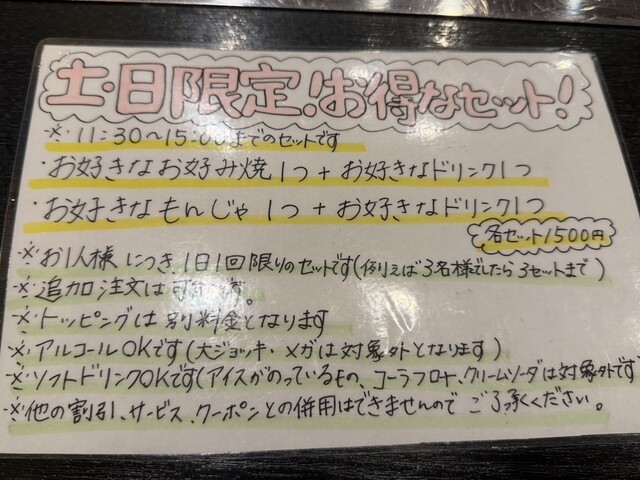 土・日限定!お得なセット!
※11:30〜15:00までのセットです
・お好きなお好み焼1つ+お好きなドリンク1つ
・お好きなもんじゃ1つ+お好きなドリンク1つ
各セット1500円
※お1人様につき1日1回限りのセットです(例えば3名様でしたら3セットまで)
※追加注文は可能です。
※トッピングは別料金となります
※アルコールOKです(大ジョッキ・メガは対象外となります)
※ソフトドリンクOKです(アイスがのっているもの、コーラフロート、クリームソーダは対象外です
※他の割引、サービス、クーポンとの併用はできませんのでご了承ください。